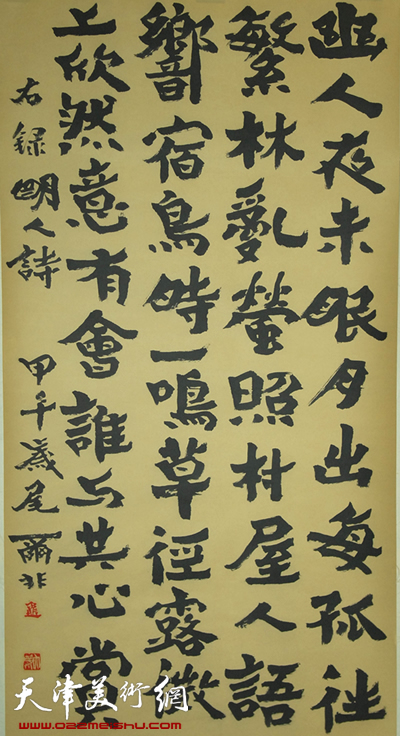 幽人夜未眠月出每孤往
繁林亂螢照村屋人語
響宿鳥時一鳴草徑露微
上欣然意有會誰与共心賞
右録明人詩
甲午歲尾爾非
天津美術網
www.024meishu.com